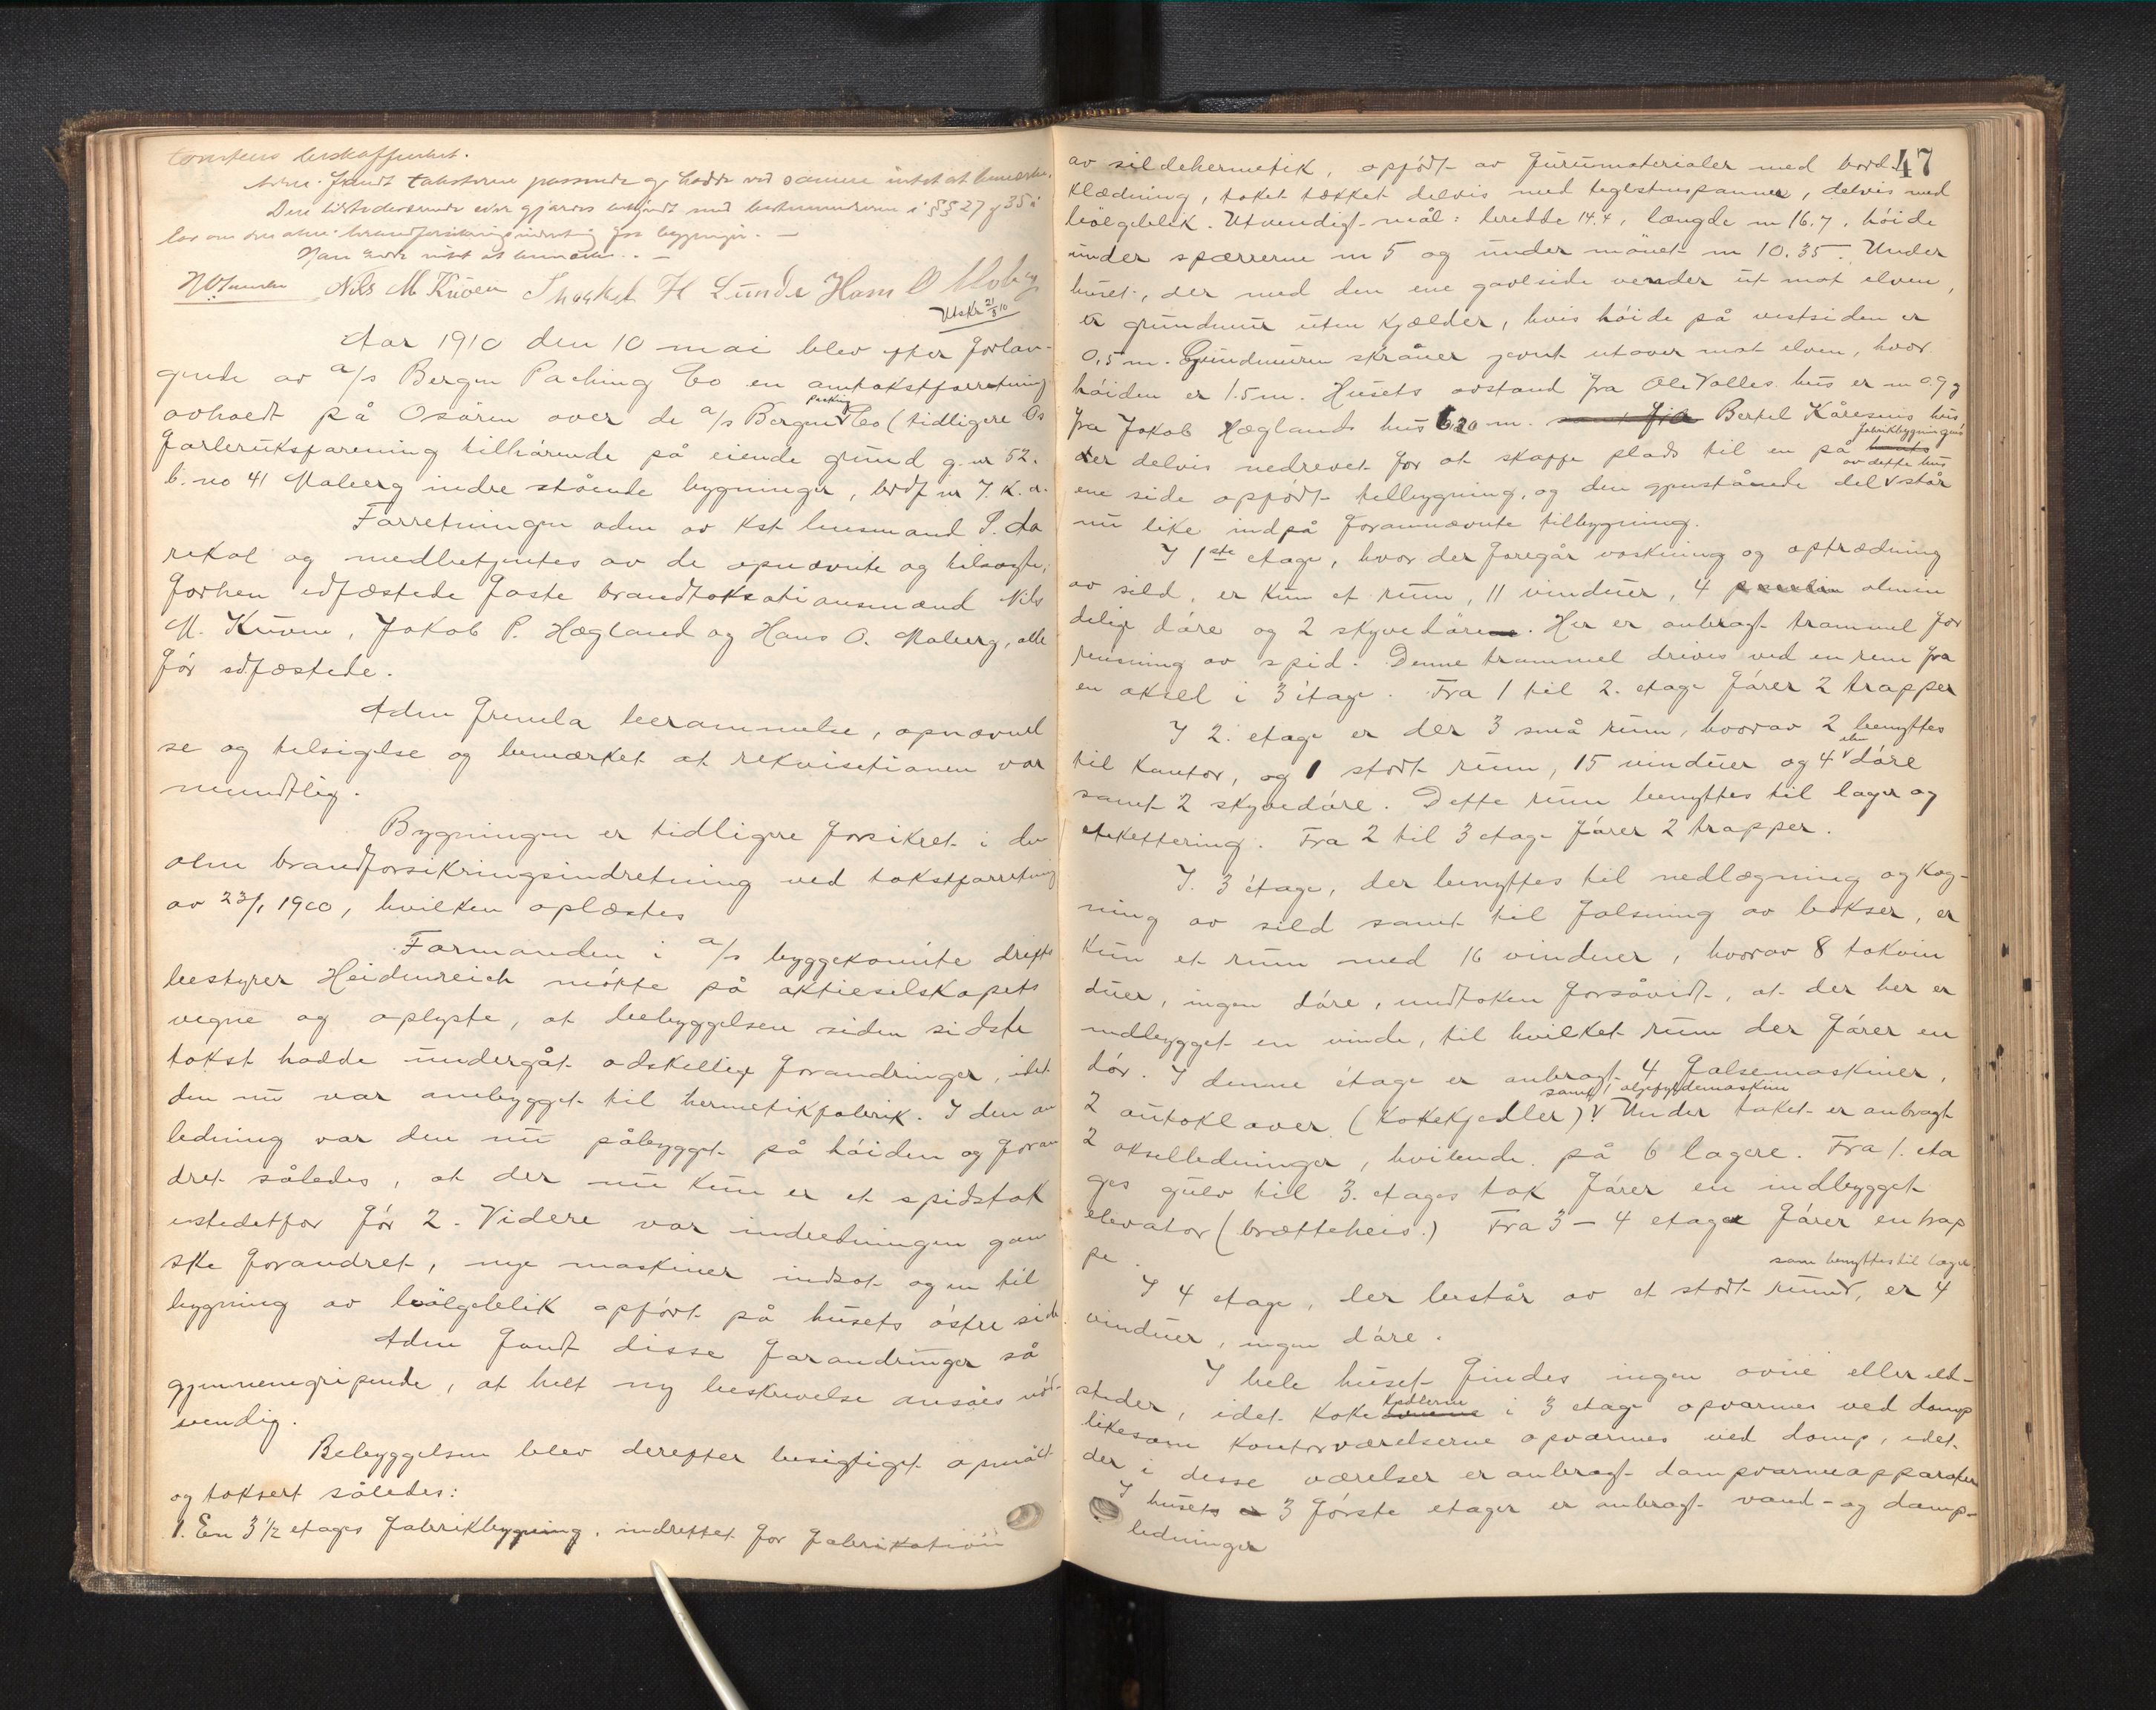 takstens beskaffenhet.
Adm. fandt taksterne passende og hadde ved samme intet at bemærke.
De tilstedeværende eier gjordes bekjendt med bestemmelserne i §§ 27 og 35 i
lov om den alm. brandforsikringsindretning for bygninger. —
Han hadde intet at bemærke. —
Nils M. Kuven Thorkel H Lunde Hans O Moberg
Utskr 21/5 10
Aar 1910 den 10 mai blev efter forlan-
gende av a/s Bergen Packing Co en omtakstforretning
avholdt på Osøren over de a/s Bergen Packing Co (tidligere Os
Garveriksforening tilhørende på eiende grund g. nr 52.
b. no 41 Moberg indre stående bygninger, brdf nr 7. k. a.
Forretningen adm av kst lensmand P. Aa
rekol og medbetjentes av de opnævnte og tilsagte,
forhen edfæstede faste brandtakstationsmænd Nils
M. Kuven, Jakob P. Hægland og Hans O. Moberg, alle
før edfæstede.
Adm fremla berammelse, opnævnel
se og tilsigelse og bemærket at rekvisitionen var
mundtlig.
Bygningen er tidligere forsikret i den
alm brandforsikringsindretning ved takstforretning
av 23/1 1900, hvilken oplæstes
Formanden i a/s byggekomite drifts
bestyrer Heidenreich møtte på aktieselskapets
vegne og oplyste, at bebyggelsen siden sidste
takst hadde undergåt adskellige forandringer, idet
den nu var ombygget til hermetikfabrik. I den an
ledning var den nu påbygget på høiden og foran
dret således, at der nu kun er et spidstak
istedetfor før 2. Videre var indredningen gan
ske forandret, nye maskiner indsat og en til
bygning av bølgeblik opført på husets østre side
Adm fandt disse forandringer så
gjennemgripende, at helt ny beskrivelse ansåes nød-
vendig.
Bebyggelsen blev derefter besigtiget opmålt
og taksert således:
1. En 3 1/2 etages fabrikbygning, indrettet for fabrikation
47
av sildehermetik, opført av furumaterialer med bord-
klædning, taket tækket delvis med teglstenspanner, delvis med
bølgeblik. Utvendigt mål: bredde 14.4, længde m 16.7, høide
under spærrerne m 5 og under mønet m 10.35. Under
huset, der med den ene gavlside vender ut mot elven,
er grundmur uten kjælder, hvis høide på vestsiden er
0,5 m. Grundmuren skråner jevnt utover mot elven, hvor
høiden er 1.5 m. Husets avstand fra Ole Valles hus er m 0.9 og
fra Jakob Hæglands hus 6.20 m. samt fra Bertel Kåresens hus
der delvis nedrevet for at skaffe plads til en på husets fabrikbygningens
ene side opført tilbygning, og den gjenstående del av dette hus står
nu like indpå forannævnte tilbygning.
I 1ste etage, hvor der foregår vaskning og optrædning
av sild, er kun et rum, 11 vinduer, 4 almin
delige døre og 2 skyvedøre. Her er anbragt trammel for
rensning av spid. Denne trammel drives ved en rem fra
en aksel i 3 étage. Fra 1 til 2. etage fører 2 trapper
I 2. etage er der 3 små rum, hvorav 2 benyttes
til kontor, og 1 stort rum, 15 vinduer og 4 alm døre
samt 2 skyvedøre. Dette rum benyttes til lager og
etikettering. Fra 2 til 3 etage fører 2 trapper.
I. 3 étage, der benyttes til nedlægning og kog-
ning av sild samt til falsning av bokser, er
kun et rum med 16 vinduer, hvorav 8 takvin
duer, ingen døre, undtaken forsåvidt, at der her er
indbygget en vinde, til hvilket rum der fører en
dør. I denne étage er anbragt 4 falsemaskiner,
2 autoklaver (kokekjedler) samt 1 oljefyldemaskine. Under taket er anbragt
2 akselledninger, hvilende på 6 lagere. Fra 1. eta
ges gulv til 3. etages tak fører en indbygget
elevator (brætteheis.) Fra 3–4 etage fører en trap
pe.
I 4 etage, der består av et stort rum, som benyttes til lager, er 4
vinduer, ingen døre.
I hele huset findes ingen ovne eller ild-
steder, idet koke ovnene kjedlerne i 3 etage opvarmes ved damp
likesom kontorværelserne opvarmes ved damp, idet
der i disse værelser er anbragt dampvarmeapparater
I husets 3 første etager er anbragt vand- og damp-
ledninger